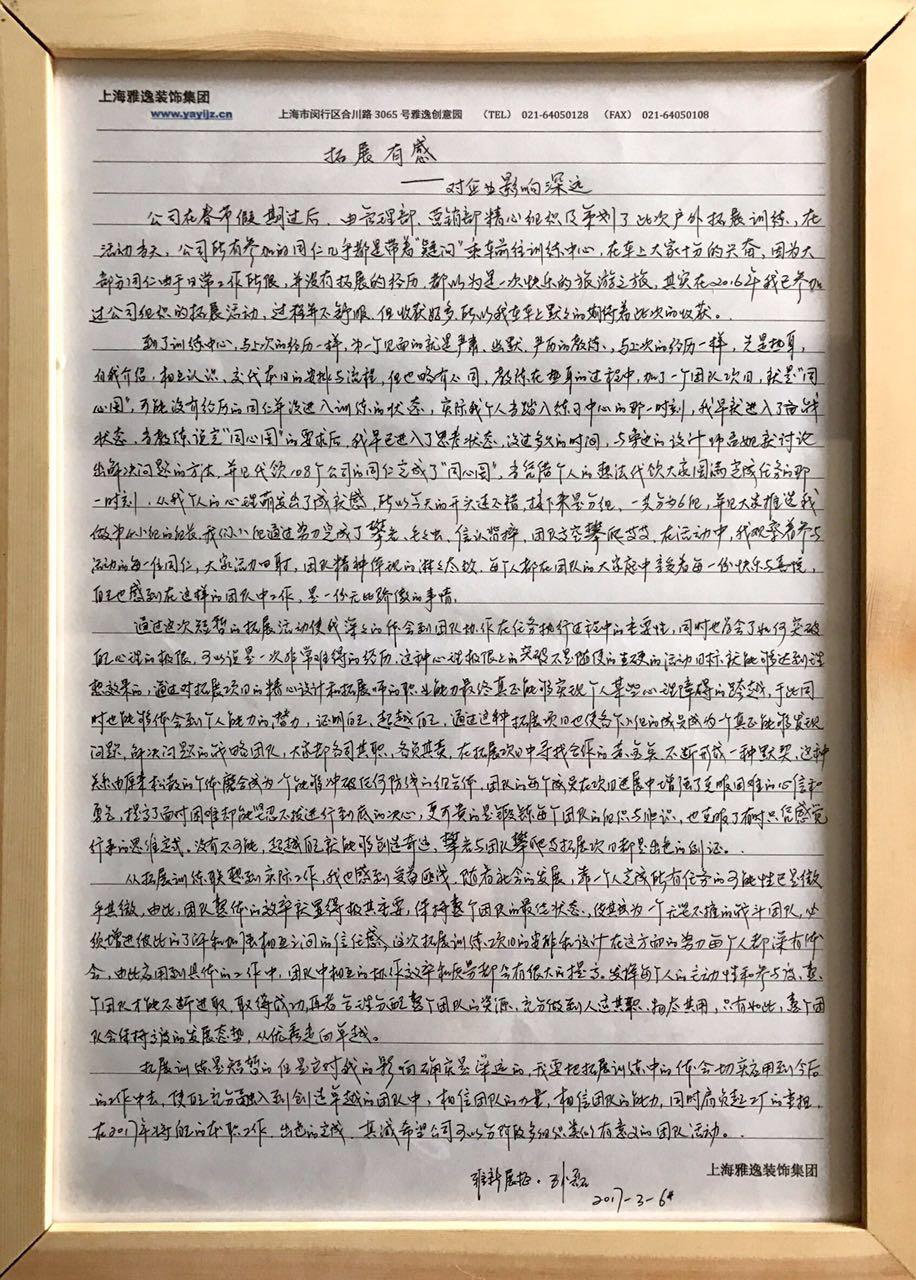 上海雅逸装饰集团
www.yayijz.cn 上海市闵行区合川路 3065 号雅逸创意园 （TEL） 021-64050128 （FAX） 021-64050108
拓展有感
——对企业影响深远
公司在春节假期过后，由管理部、营销部精心组织及策划了此次户外拓展训练，在
活动当天，公司所有参加的同仁几乎都是带着“疑问”乘车前往训练中心，在车上大家十分的兴奋，因为大
部分同仁由于日常工作所限，并没有拓展的经历，都以为是一次快乐的旅游之旅，其实在2016年我已参加
过公司组织的拓展活动，过程并不舒服，但收获好多，所以我在车上默默的期待着此次的收获。
到了训练中心，与上次的经历一样，第一个见面的就是严肃、幽默、严厉的教练，与上次的经历一样，先是热身，
自我介绍，相互认识，交代本日的安排与流程，但也略有不同，教练在热身的过程中，加了一个团队项目，就是“同
心圆”，可能没有经历的同仁并没进入训练的状态，实际我个人当踏入练习中心的那一时刻，我早就进入了
状态，当教练说完“同心圆”的要求后，我早已进入了思考状态，没过多久的时间，与旁边的设计师
出解决问题的方法，并且代领108个公司的同仁完成了“同心圆”，当凭借个人的想法代领大家圆满完成任务的那
一时刻，从我个人的心理萌发出了成就感，所以今天的开头还不错，接下来是分组，一共分为6组，并且大家推选我
做第小组的组长，我们小组通过努力完成了攀岩、毛毛虫、信认背摔、团队高空攀爬等等，在活动中，我观察着参与
活动的每一位同仁，大家活力四射，团队精神体现的淋漓尽致，每个人都在团队的大家庭中享受着每一份快乐与喜悦，
自己也感到在这样的团队中工作，是一份无比骄傲的事情。
通过这次短暂的拓展活动使我深深的体会到团队协作在任务执行过程中的重要性，同时也学会了如何突破
自己心理的极限，可以说是一次非常难得的经历，这种心理极限上的突破不是随便的生硬的活动目标就能够达到理
想效果的，通过对拓展项目的精心设计和拓展师的职业能力最终真正能够实现个人某些心理障碍的跨越，于此同
时也能够体会到个人能力的潜力，证明自己，超越自己，通过这种拓展项目也使各个小组的成员成为一个真正能够发现
问题、解决问题的战略团队，大家都各司其职、各负其责，在拓展项目中寻找合作的 不断形成一种默契，这种
关系由原来松散的个体磨合成为一个能够冲破任何防线的组合体，团队的每个成员在项目进展中增强了克服困难的心信和
勇气，提高了面对困难却能坚忍不拔进行到底的决心，更可贵的是锻炼每个团队的组织与胆识，也克服了有时只凭感觉
行事的思维定式，没有不可能，超越自己就能够创造奇迹，攀岩与团队攀爬等拓展项目都是出色的例证。
从拓展训练联想到实际工作，我也感到受益匪浅，随着社会的发展，靠一个人完成所有任务的可能性已是微
乎其微，由此，团队整体的效率就显得极其重要，保持整个团队的最佳状态，使其成为一个无坚不摧的战斗团队，必
须增进彼此的了解和加强相互之间的信任感，这次拓展训练项目的安排和设计在这方面的努力每个人都深有体
会，由此应用到具体的工作中，团队中相互的协作效率和质量都会有很大的提高，发挥每个人的主动性和参与度，整
个团队才能不断进取，取得成功，再者合理分配整个团队的资源，充分做到人适其职、物尽其用，只有如此，整个团
队会保持高效的发展态势，从优秀走向卓越。
拓展训练是短暂的但是它对我的影响确实是深远的，我要把拓展训练中的体会切实应用到今后
的工作中去，使自己充分融入到创造卓越的团队中，相信团队的力量，相信团队的能力，同时肩负起工厂的重担，
在2017年将自己的本职工作，出色的完成，真诚希望公司可以多组织类似有意义的团队活动。
上海雅逸装饰集团
2017-3-6